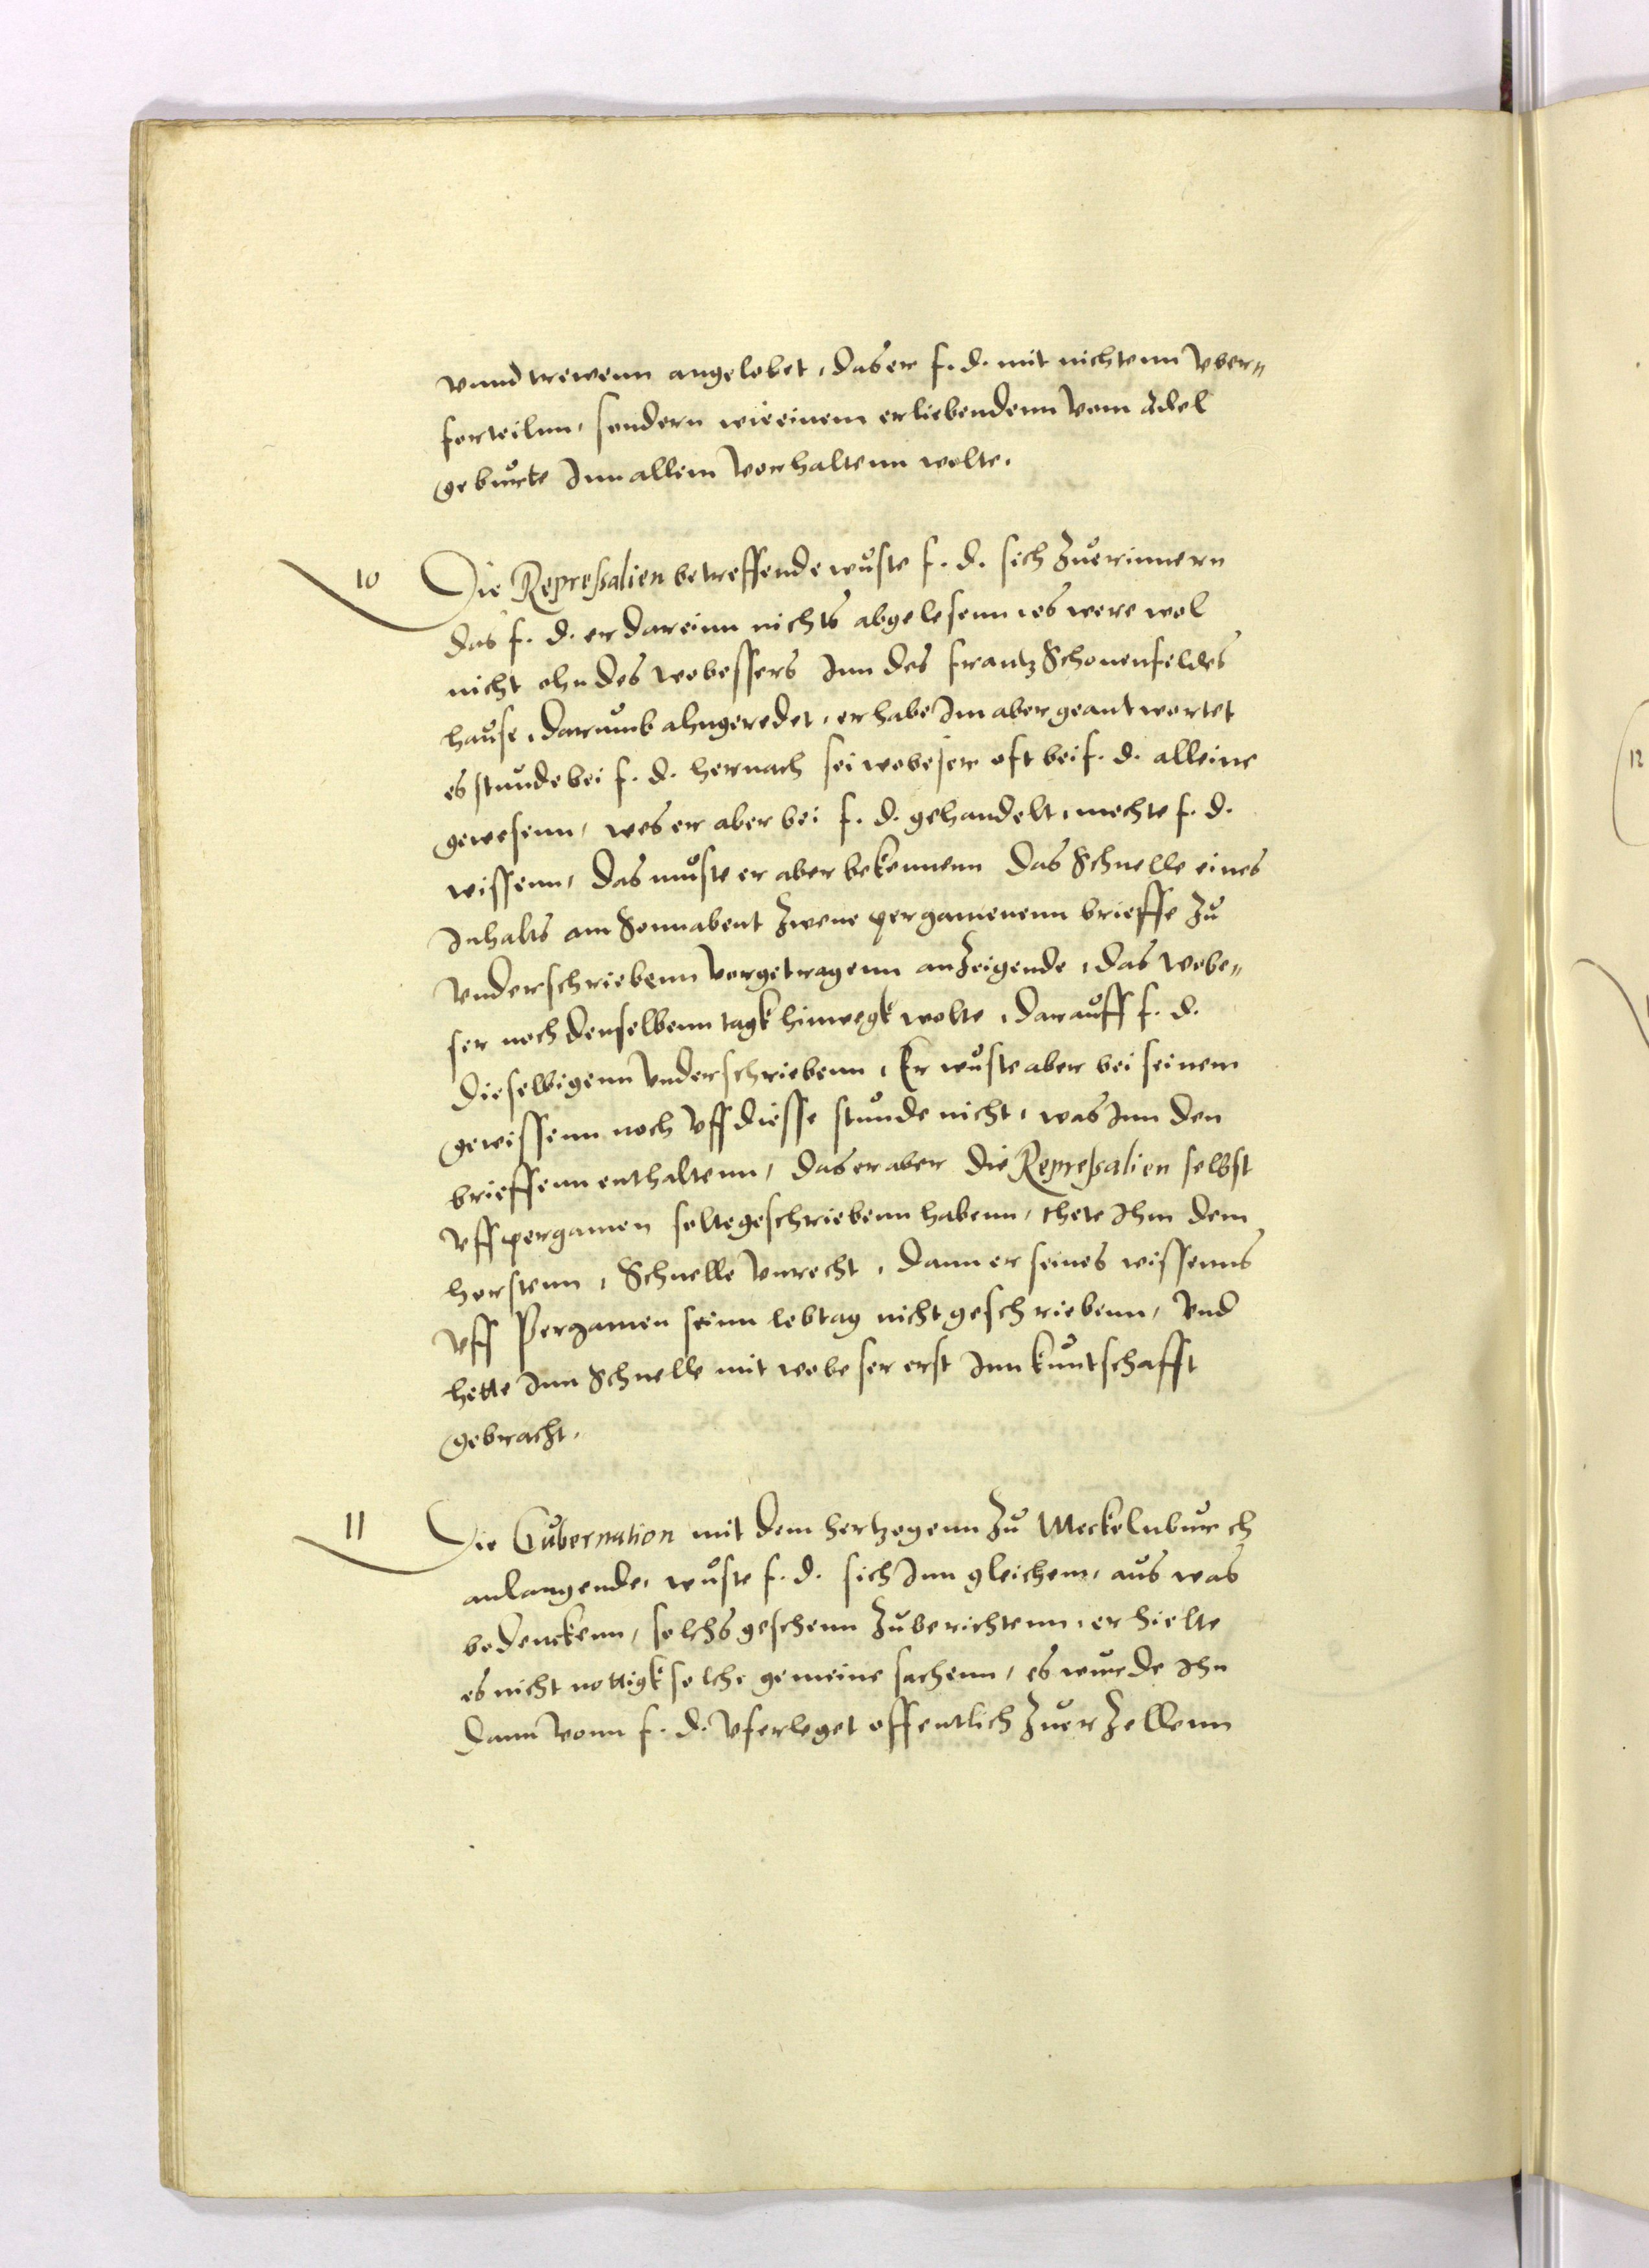 vnnd trewenn angelobet, das er f. d. mit nichtenn vber=
forteilnn, sondern wie einem erliebendenn vom Adel
geburte Inn allem verhaltenn wolte.
10 Die Repressalien betreffende wuste f. d. sich zuerinnern
das f. d. er dareinn nichts abgelesenn, es were wol
nicht ohn des wobessers Inn des frantz Schonenfeldes
hause, darumb ahngeredet, er habe Im aber geantwortet
es stunde bei f. d. hernach sei wobeser oft bei f. d. alleine
gewesenn, wes er aber bei f. d. gehandelt, mochte f. d.
wissenn, das muste er aber bekennenn das Schnelle eines
Inhalts am Sonnabent zwene pergamenenn brieffe zu
vnderschriebenn vorgetragenn anzeigende, das Wobe=
ser noch denselbenn tagk hinwegk wolte, darauff f. d.
dieselbigenn vnderschriebenn, Er wuste aber bei seinem
gewissenn noch vff diesse stunde nicht, was Inn den
brieffenn enthaltenn, das er aber die Repressalien selbst
vff pergamen solte geschriebenn habenn, thete Ihm dem
horstenn, Schnelle vnrecht, dann er seines wissenns
vff Pergamen seinn lebtag nicht geschriebenn, vnd
hette Inn Schnelle mit wobeser erst Inn kuntschafft
gebracht.
11 Die Gubernation mit dem hertzogenn zu Meckelnburch
anlangende, wuste f. d. sich Inn gleichem, aus was
bedenckenn, solchs geschenn zuberichtenn, er hielte
es nicht nottigk solche gemeine sachenn, es wurde Ihn
dann vonn f. d. vferleget offentlich zuerzellenn
12